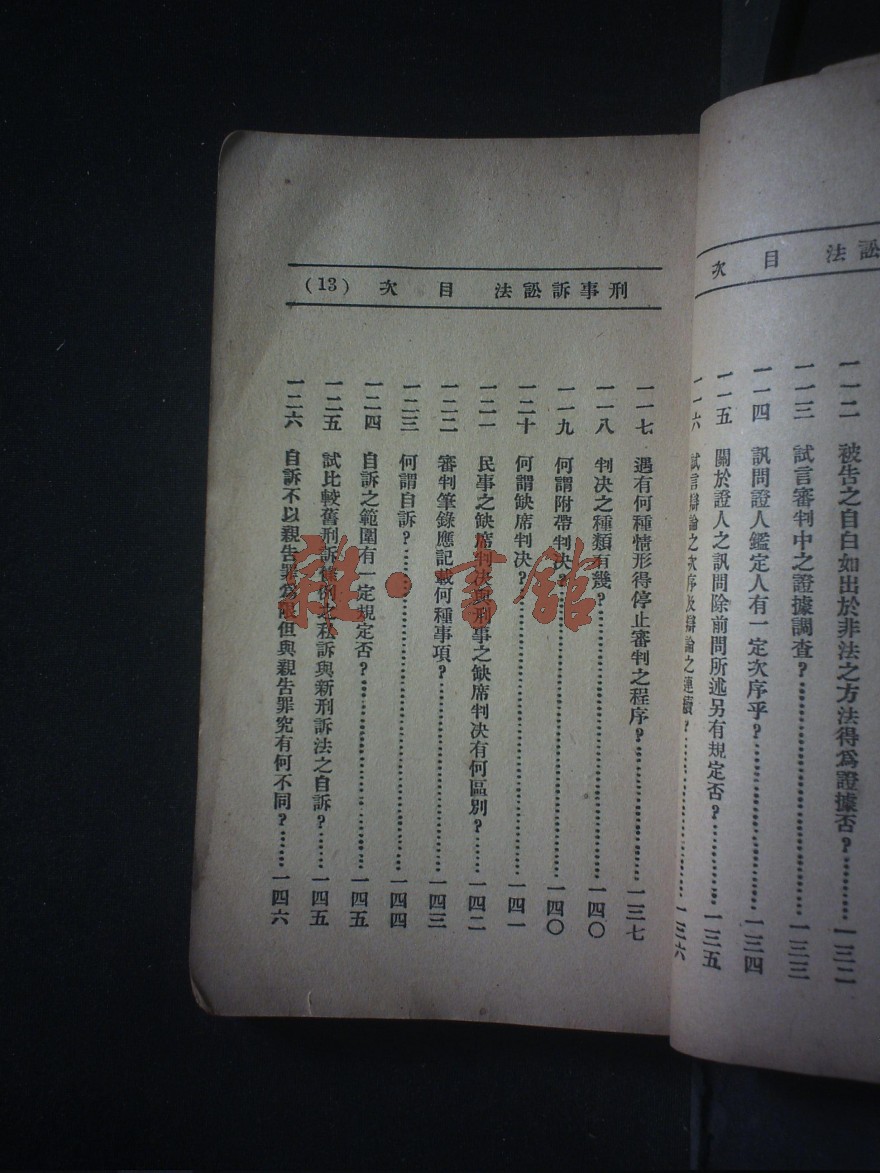 法訟
次 目
一一二 被告之自白如出於非法之方法得爲證據否?…………一三二
一一三 試言審判中之證據調查?…………一三三
一一四 訊問證人鑑定人有一定次序乎?…………一三四
一一五 關於證人之訊問除前問所述另有規定否?…………一三五
一一六 試言辯論之次序及辯論之連續?…………一三六
刑事訴訟法 目次 (13)
一一七 遇有何種情形得停止審判之程序?…………一三七
一一八 判決之種類有幾?…………一四〇
一一九 何謂附帶判決?…………一四〇
一二十 何謂缺席判決?…………一四一
一二一 民事之缺席判決與刑事之缺席判決有何區別?……一四二
一二二 審判筆錄應記載何種事項?…………一四三
一二三 何謂自訴?…………一四四
一二四 自訴之範圍有一定規定否?…………一四五
一二五 試比較舊刑訴條例之私訴與新刑訴法之自訴?……一四五
一二六 自訴不以親告罪爲限但與親告罪究有何不同?……一四六
雜·書館